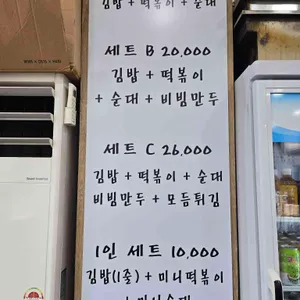 김밥 + 떡볶이 + 순대
세트 B 20,000
김밥 + 떡볶이
+ 순대 + 비빔만두
세트 C 26,000
김밥 + 떡볶이 + 순대
비빔만두 + 모듬튀김
1인 세트 10,000
김밥(1줄) + 미니떡볶이